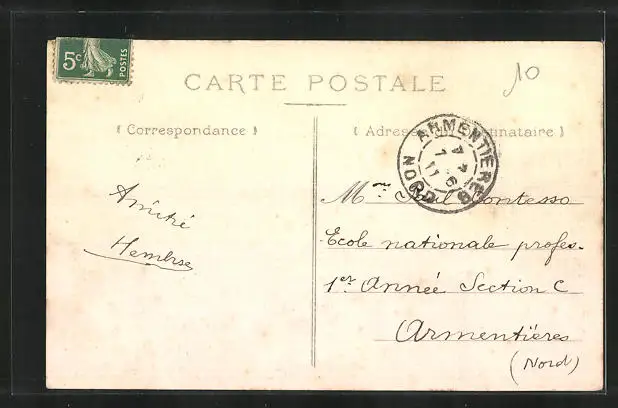 5c
POSTES
10
CARTE POSTALE
( Correspondance )
( Adresse du Destinataire )
ARMENTIERES
NORD
Amitié
Mr Paul
Ecole nationale profes-
1er Année Section C
Armentières
(Nord)